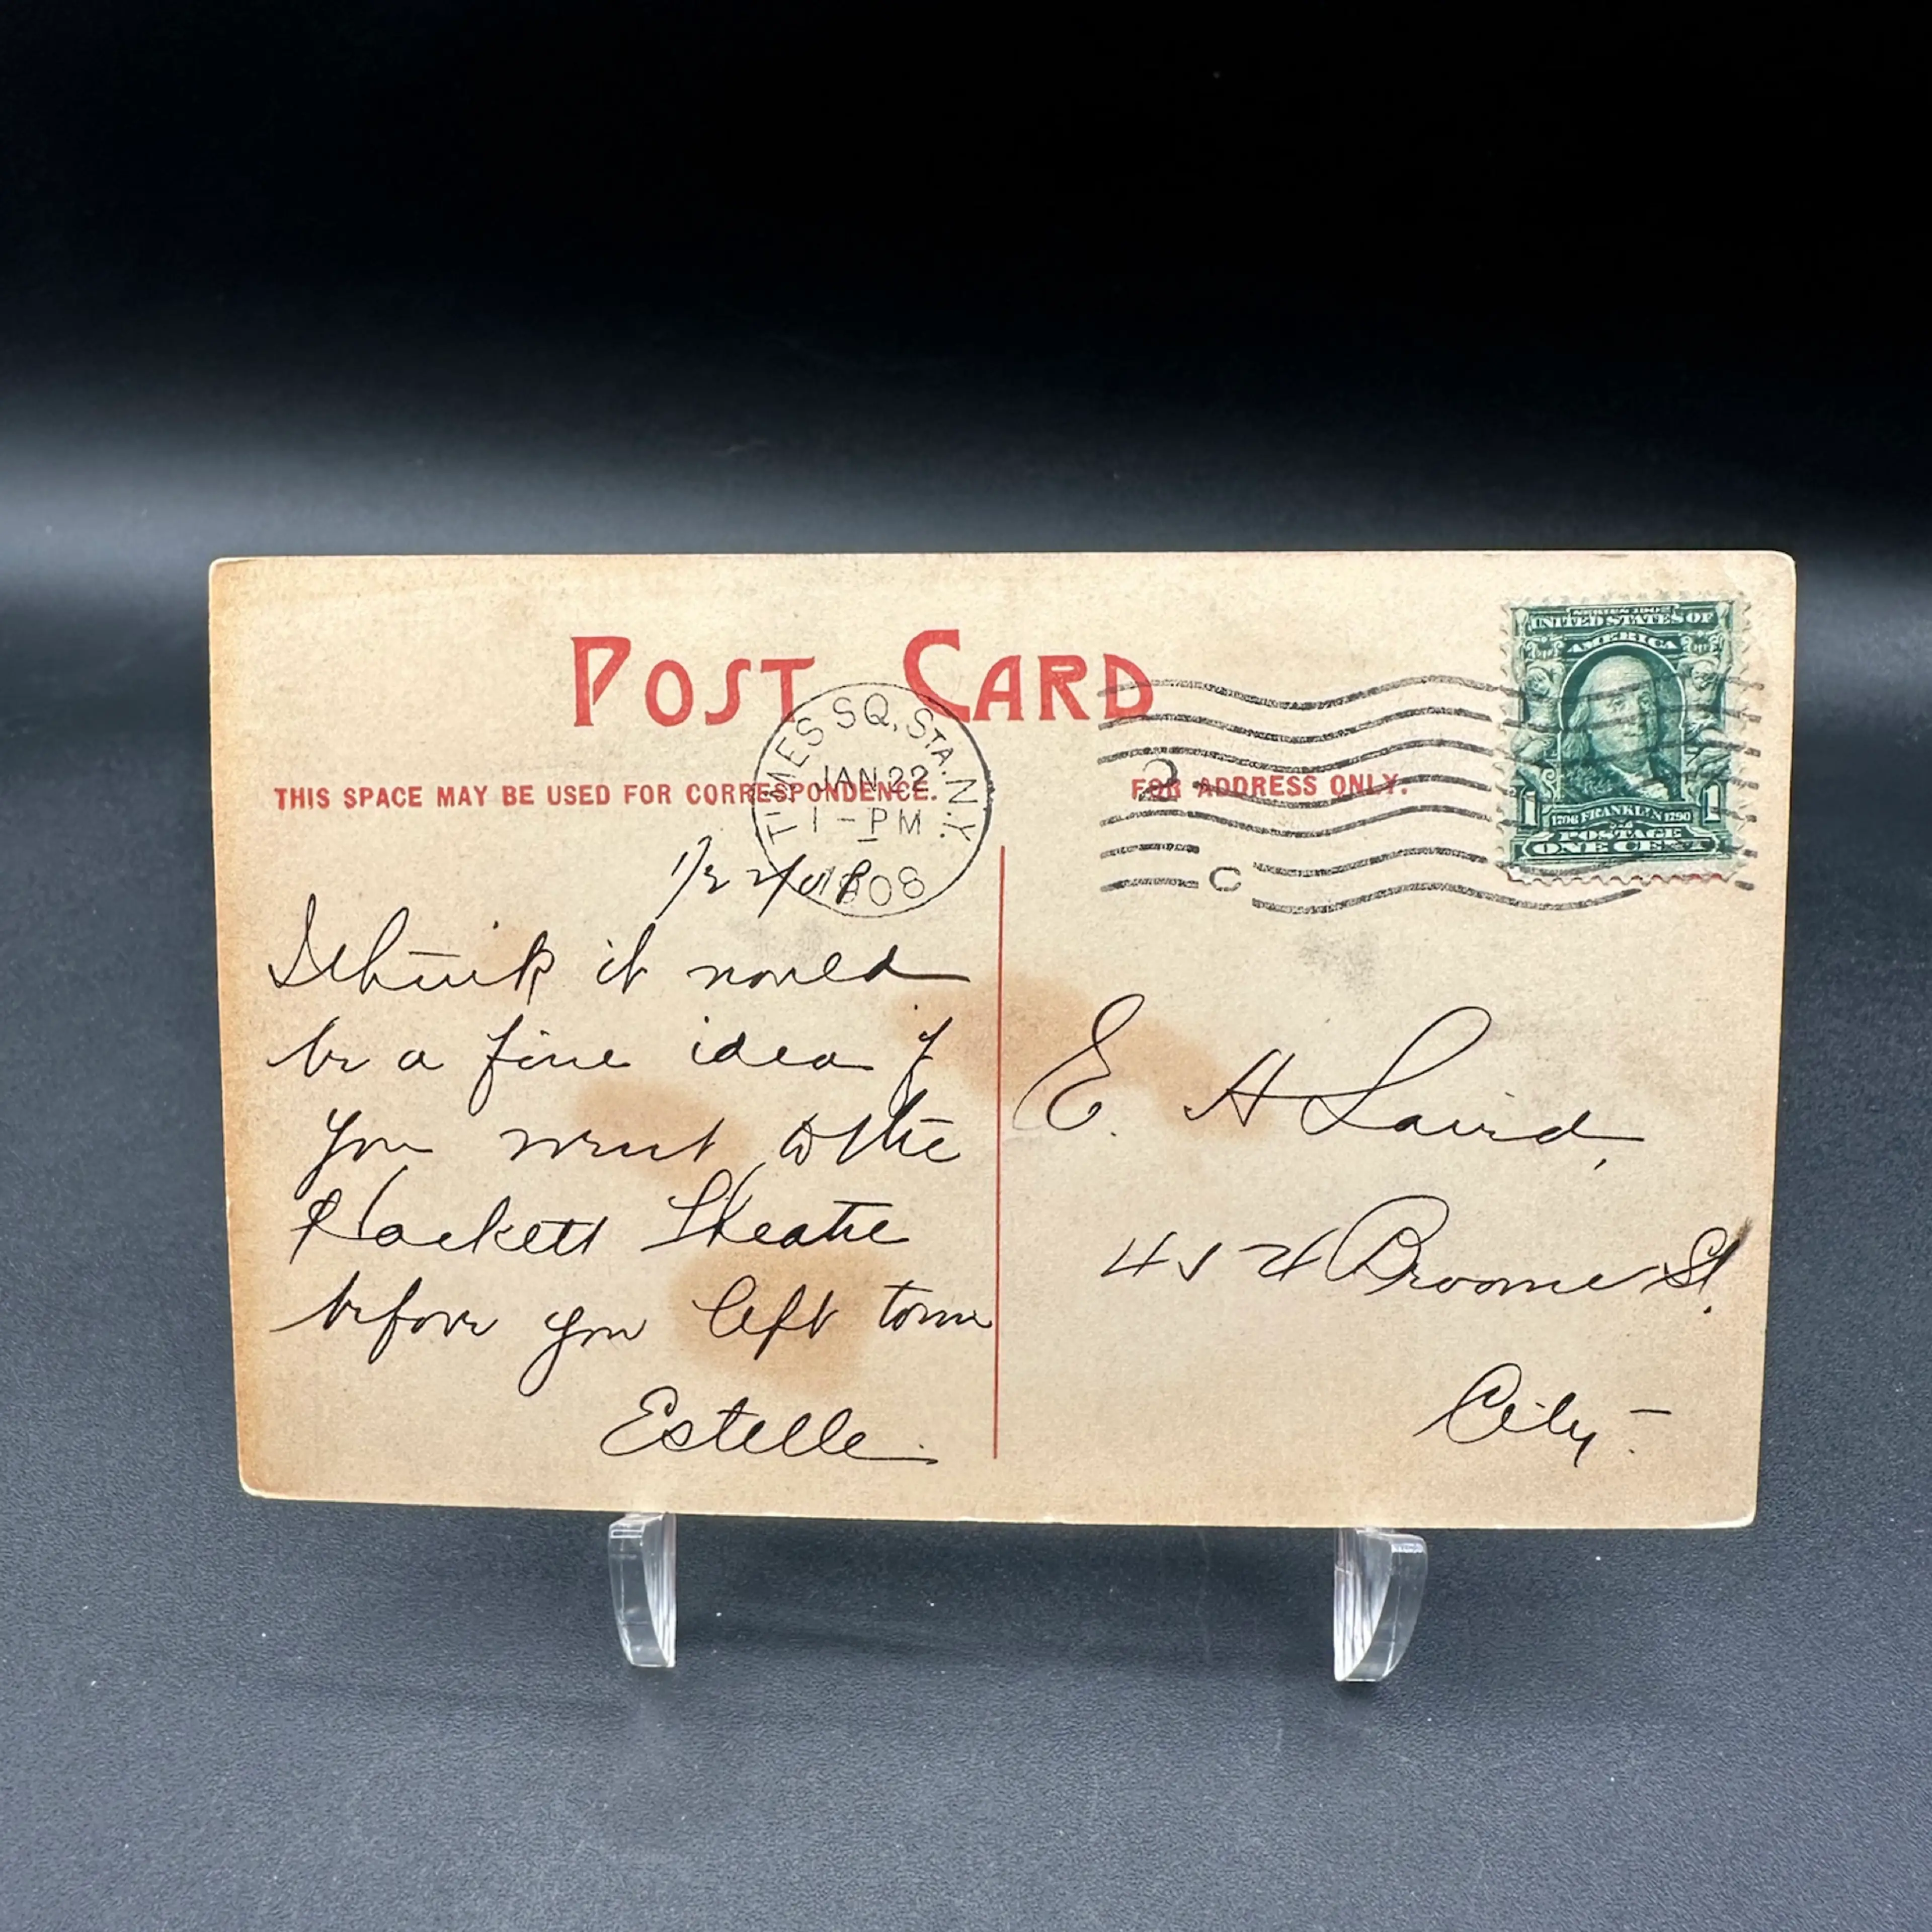 POST CARD
THIS SPACE MAY BE USED FOR CORRESPONDENCE.
FOR ADDRESS ONLY.
TIMES SQ. STA. N.Y.
JAN 22
1-PM
1908
2
C
UNITED STATES OF
AMERICA
1706 FRANKLIN 1790
POSTAGE
1 1
ONE CENT
1/22/08
I think it would
be a fine idea if
you went to the
Hackett Theatre
before you left town
Estelle.
E. H Laird,
454 Broome St.
City-